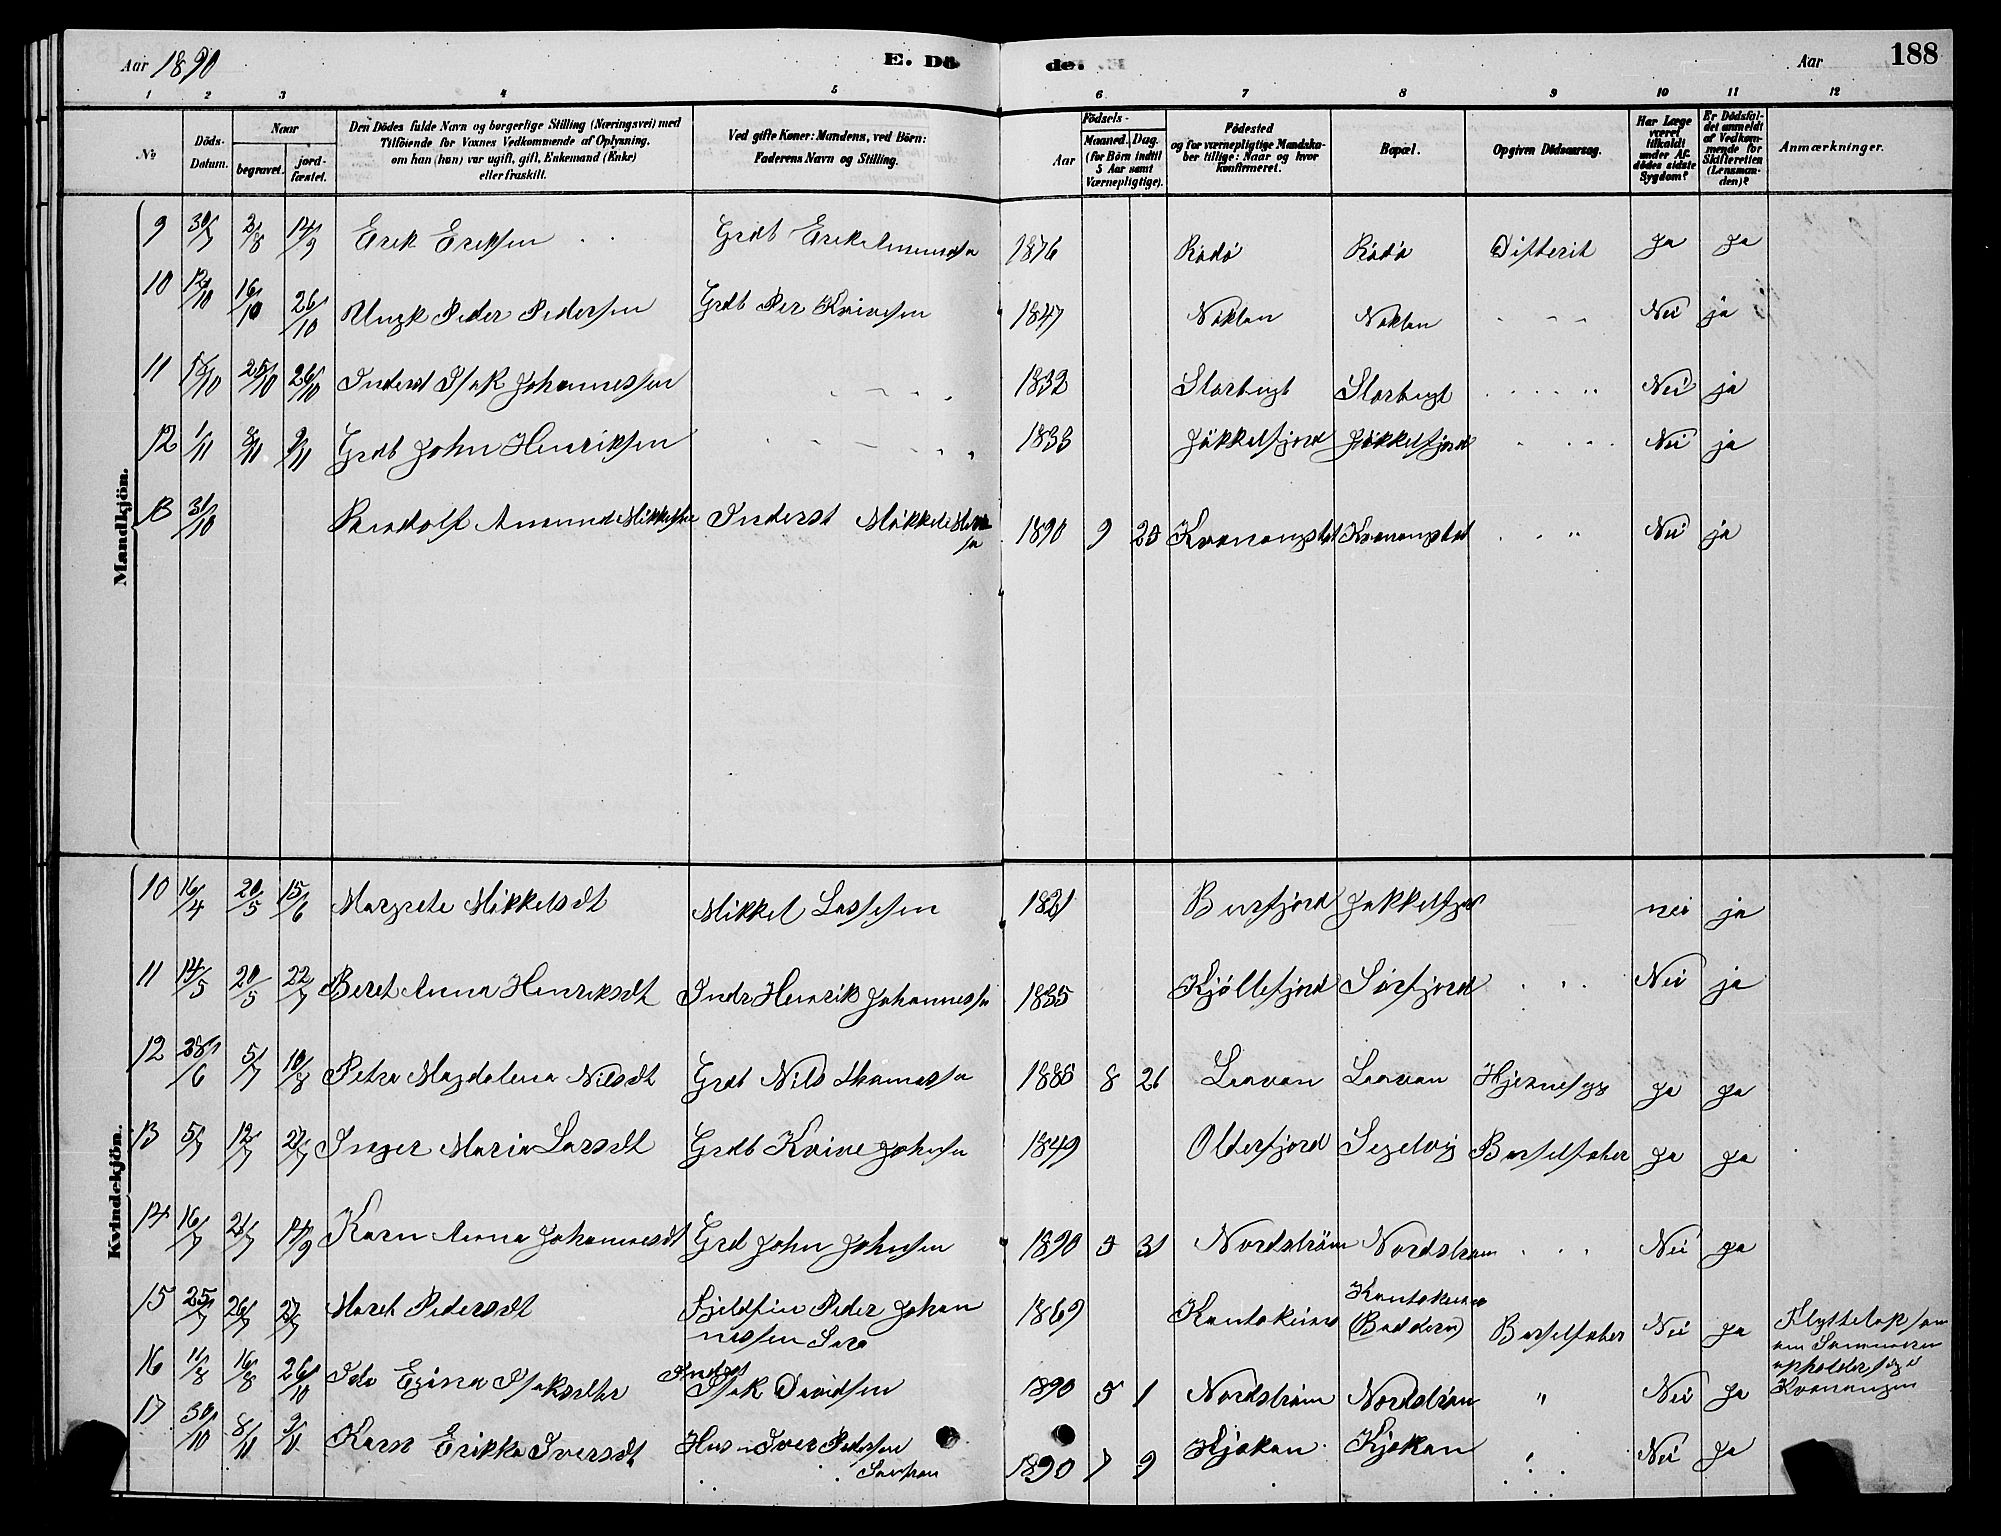 Aar 1890 E. Dö de. Aar 188
1 2 3 4 5 6 7 8 9 10 11 12
No Döds-Datum. Naar begravet. jordfæstet. Den Dödes fulde Navn og borgerlige Stilling (Næringsvei) med Tilföiende for Voxnes Vedkommende af Oplysning, om han (hun) var ugift, gift, Enkemand (Enke) eller fraskilt. Ved gifte Koner: Mandens, ved Börn: Faderens Navn og Stilling. Födsels- Aar Maaned. Dag. (for Börn indtil 5 Aar samt Værnepligtige). Födested og for værnepligtige Mandskaber tillige: Naar og hvor konfirmeret. Bopæl. Opgiven Dödsaarsag. Har Læge været tilkaldt under Afdödes sidste Sygdom? Er Dödsfaldet anmeldt af Vedkommende for Skifteretten (Lensmanden)? Anmærkninger.
Mandkjön.
9 30/7 2/8 14/9 Erik Eriksen Grdb Erik Amundsn 1876 Rödö Rödö Difterit Ja Ja
10 12/10 16/10 26/10 Ungk Peder Pedersen Grdb Per Kvivesen 1847 Noklan Noklan - - - Nei ja
11 18/10 25/10 26/10 Inderst Isak Johannessen 1832 Storbugt Storbugt Nei ja
12 1/11 8/11 9/11 Grdb John Henriksen 1833 Jökkelfjord Jökkelfjord Nei ja
13 31/10 Amund Mikkelsen Inderst Mikkel 1890 9 20 " Nei ja
Kvindekjön.
10 16/4 20/5 15/6 Margrete Mikkelsdt Mikkel Lassesen 1821 Burfjord Jokkelfjor nei ja
11 14/5 20/5 22/7 Beret Anna Henriksdt Inds Henrik Johannessn 1835 Kjöllefjord Sörfjord Nei ja
12 28/6 5/7 10/8 Petra Magdalena Nilsdt Grdb Nils Thomassn 1886 8 26 Laavan Laavan Hjernesyg Ja Ja
13 5/7 12/7 27/7 Inger Maria Larsdt Grdb Kvive Johnsn 1849 Olderfjord Segelvig Barselfeber Ja Ja
14 16/7 21/7 14/9 Karn Anna Johannesdt Grd John Johnsen 1890 5 31 Nordström Nordström Nei Ja
15 25/7 26/7 27/7 Maret Pedersdt Fjeldfin Peder Johan 1869 Kautokeino Kautokeino
nessen Sara (Badderen) Barselfeber Nei Ja Flyttelap som
om Sommeren
opholder sig i
Kvænangen
16 11/8 16/8 26/10 Ida Isaksdtr Indst
Isak Davidsen 1890 5 1 Nordström Nordström " Nei Ja
17 30/10 8/11 9/11 Karn Erikka Iversdt Hus Iver Pedersen 1890 7 9 Kjækan Kjækan Nei Ja